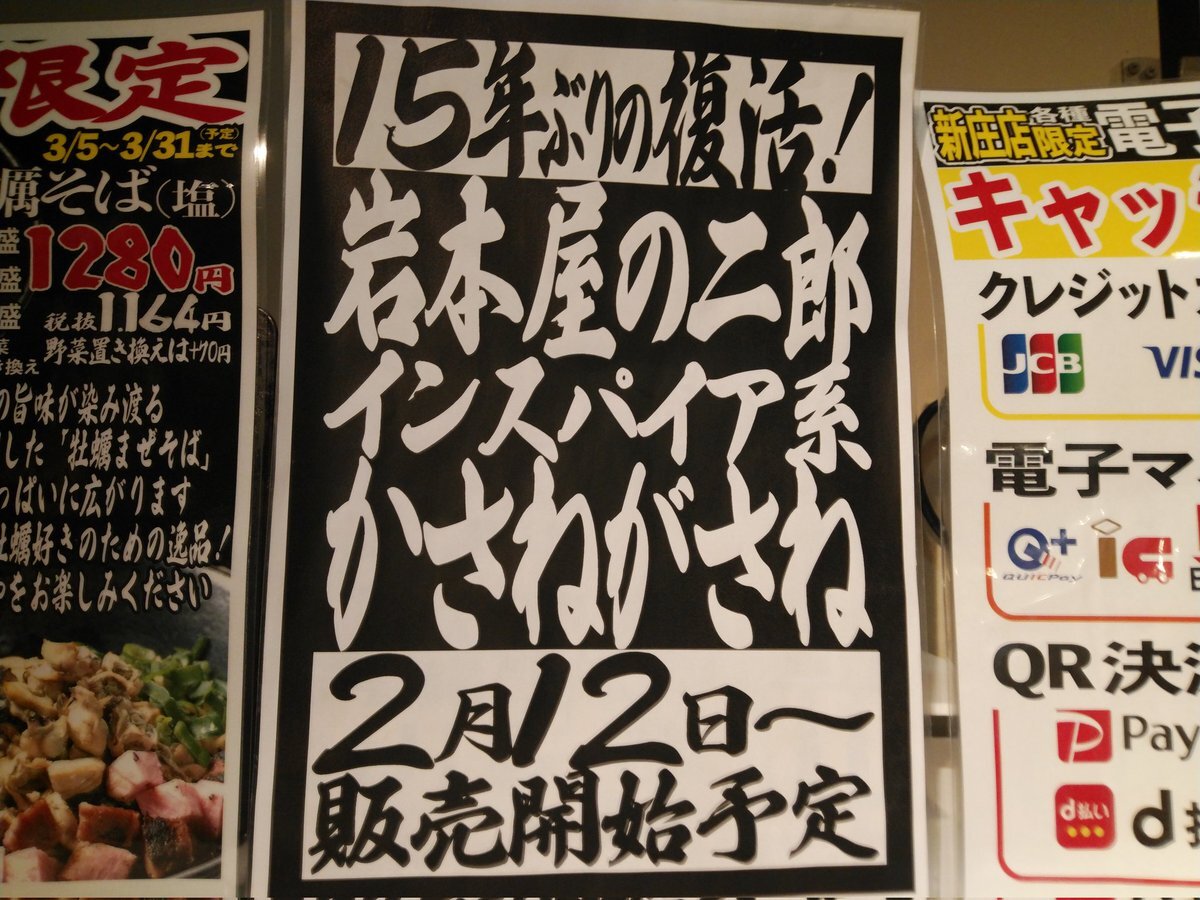 限定
3/5～3/31(予定)まで
蠣そば(塩)
盛
盛 1280円
盛 税抜1,164円
菜 野菜置き換えは+70円
き換え
の旨味が染み渡る
した「牡蠣まぜそば」
っぱいに広がります
牡蠣好きのための逸品!
をお楽しみください
15年ぶりの復活!
岩本屋の二郎
インスパイア系
かさねがさね
2月12日～
販売開始予定
新庄店 各種
限定 電子
キャッ
クレジット
JCB VIS
電子マ
QUICPay iD
QR決済
Pay
d払い d払